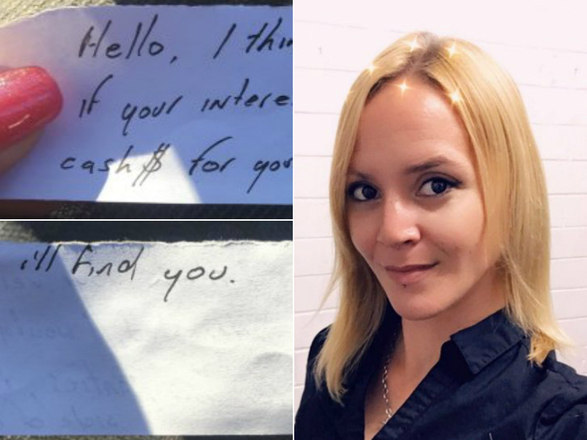 Hello, I thin
if your intere
cash$ for you
i'll find you.